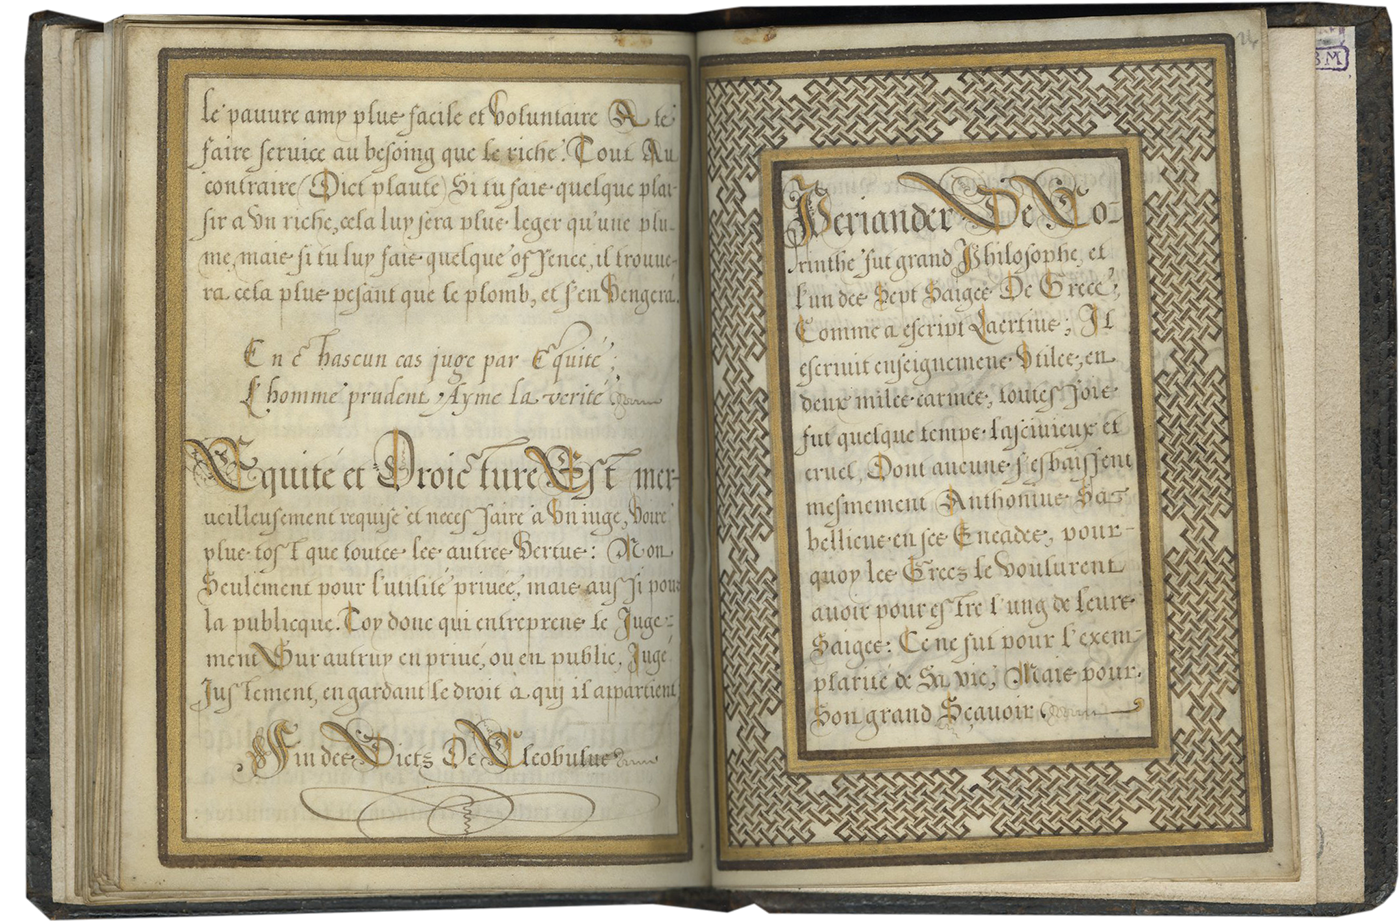 le pauure amy plus facile et Voluntaire A te
faire seruice au besoing que le riche. Tout Au
contraire (Dict plaute) Si tu fais quelque plai-
sir a Vn riche, cela luy sera plus leger qu'une plu-
me, mais si tu luy fais quelque offence, il trouue-
ra cela plus pesant que le plomb, et s'en Vengera.
En chascun cas juge par Equité;
L'homme prudent Ayme la verité
Equité et Droicture Est mer-
ueilleusement requise et necessaire a Vn iuge, Voire
plus tost que toutes les autres Vertus: Non
Seulement pour l'utilité priuee, mais aussi pour
la publicque. Toy donc qui entreprens le Juge-
ment Sur autruy en priué, ou en public, Juge
Justement, en gardant le droit à qui il appartient
Fin des Dicts De Cleobulus
24
Periander De Co-
rinthe fut grand Philosophe, et
l'un des Sept Saiges De Grece;
Comme a escript Laertius; Il
escriuit enseignemens Vtiles, en
deux milles carmes, toutesfois
fut quelque temps lasciuieux et
cruel, Dont aucuns s'esbaissent
mesmement Anthonius Sa-
bellicus en ses Eneades, pour-
quoy les Grecz le Voulurent
auoir pour estre l'ung de leurs
Saiges: Ce ne fut pour l'exem-
plarité de Sa vie, Mais pour
Son grand Sçauoir
BM